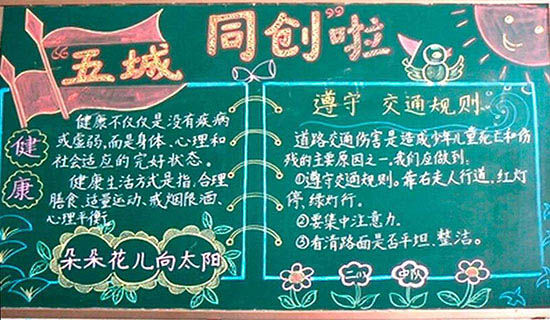 “五城同创”啦
健康
健康不仅仅是没有疾病
或虚弱,而是身体、心理和
社会适应的完好状态。
健康生活方式是指,合理
膳食、适量运动、戒烟限酒、
心理平衡。
朵朵花儿向太阳
遵守 交通规则。
道路交通伤害是造成少年儿童死亡和伤
残的主要原因之一,我们应做到:
①遵守交通规则。靠右走人行道,红灯
停,绿灯行。
②要集中注意力。
③看清路面是否平坦、整洁。
二(1) 中队